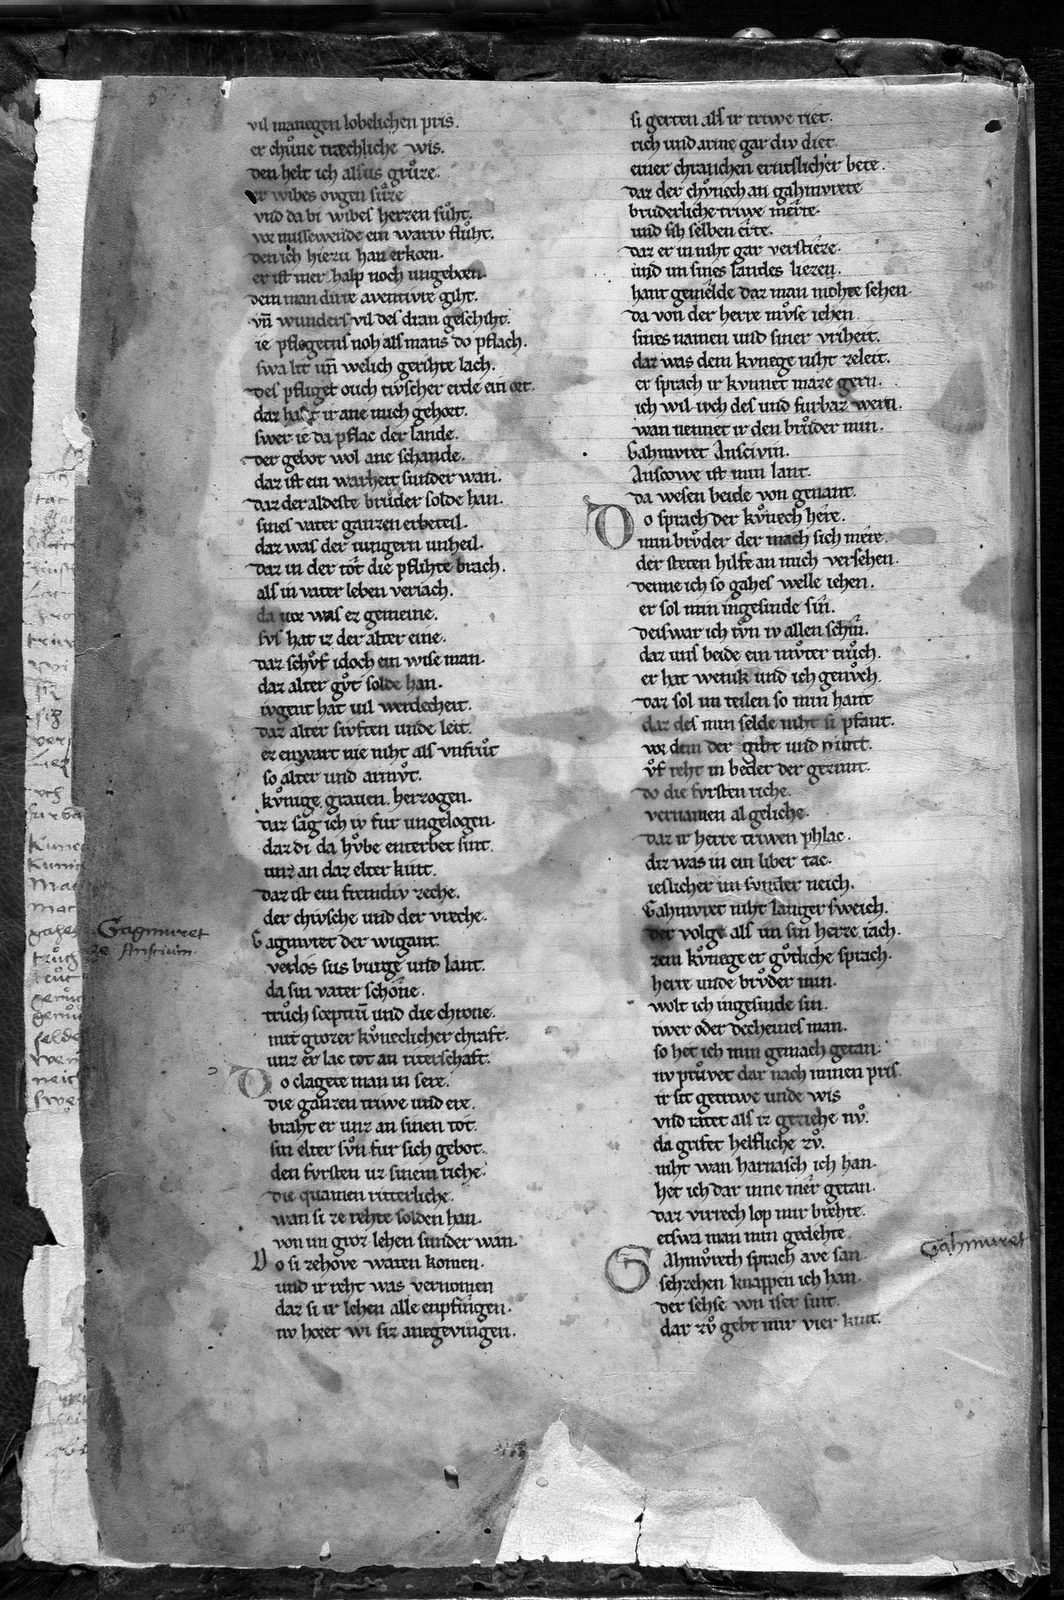 vil manegen lobelichen pris.
er chůne træchliche wis.
den helt ich alsus grůze.
er wibes ovgen sůze
vnd da bi wibes herzen sůht.
vor missewende ein wariv flůht.
den ich hierzu han erkorn.
er ist mer halp noch ungeborn.
dem man dirre aventivre giht.
vn̄ wunders vil des dran geschiht.
ie pflegetns noh als mans do pflach.
swa lit un̄ welich gerihte lach.
des pfliget ouch tivscher erde ein ort.
daz habt ir ane mich gehort.
swer ie da pflac der lande.
der gebot wol ane schande.
daz ist ein warheit sunder wan.
daz der aldeste brůder solde han.
sines vater ganzen erbeteil.
daz was der iungern unheil.
daz in der tôt die pflihte brach.
als in vater leben veriach.
da vor was ez gemeine.
svs hat iz der alter eine.
daz schůf idoch ein wise man.
daz alter gůt solde han.
ivgent hat vil werdecheit.
daz alter sivften unde leit.
ez enwart nie niht als vnfrůt
so alter und armůt.
kůnige. graven. herzogen.
daz sag ich iv fur ungelogen.
daz di da hůbe enterbet sint.
unz an daz elter kint.
daz ist ein fremdiv zeche.
der chivsche und der vreche.
Gagmvret der wigant.
verlos sus burge und lant.
da sin vater schône.
trůch sceptrū und die chrone.
mit grozer kůneclicher chraft.
unz er lac tot an riterschaft.
Do clagete man in sere.
die ganzen triwe und ere.
braht er unz an sinen tot.
sin elter sůn fur sich gebot.
den fvrsten uz sinem riche.
die quamen ritterliche.
wan si ze rehte solden han.
von im groz lehen sunder wan.
Do si zehove waren komen.
und ir reht was vernomen
daz si ir lehen alle enpfingen.
nv horet wi siz anegevingen.
Gagmuret
ze Anscium.
si gerten als ir triwe riet.
rich und arme gar div diet.
einer chranchen ernstlicher bete.
daz der chůnech an gahmvrete
bruderliche triwe mêrte.
und sih selben êrte.
daz er in niht gar verstieze.
und im sines landes liezen.
hant gemêlde daz man mohte sehen.
da von der herre mǔse iehen
sines namen und siner vriheit.
daz was dem kvnege niht zeleit.
er sprach ir kvnnet maze gern.
ich wil ivch des und furbaz wern.
wan nennet ir den brůder min.
Gahmvret Anscivin.
Anscowe ist min lant.
da wesen beide von genant.
Do sprach der kůnech hêre.
min brůder der mach sich mêre.
der steten hilfe an mich versehen.
denne ich so gahes welle iehen.
er sol min ingesinde sîn.
deiswar ich tůn iv allen schîn.
daz uns beide ein mûter trůch.
er hat wenik und ich genůch.
daz sol im teilen so min hant
daz des min selde niht si pfant.
vor dem der gibt und nimt.
ůf reht in beder der gezimt.
do die fvrsten riche.
vernamen al geliche.
daz ir herre triwen phlac.
diz was in ein liber tac.
ieslicher im svnder neich.
Gahmvret niht langer sweich.
der volge als im sin herze iach.
zem kůnege er gůtliche sprach.
herre unde brůder min.
wolt ich ingesinde sin.
iwer oder decheines man.
so het ich min gemach getan.
nv průvet dar nach minen pris.
ir sit getriwe unde wis
vnd ratet als iz geziehe nv̊.
da grifet helfliche zů.
niht wan harnasch ich han.
het ich dar inne mêr getan.
daz virrech lop mir brehte.
etswa man min gedehte.
Gahmůreth sprach ave san.
sehzehen knappen ich han.
der sehse von iser sint.
dar zů gebt mir vier kint.
Gahmuret